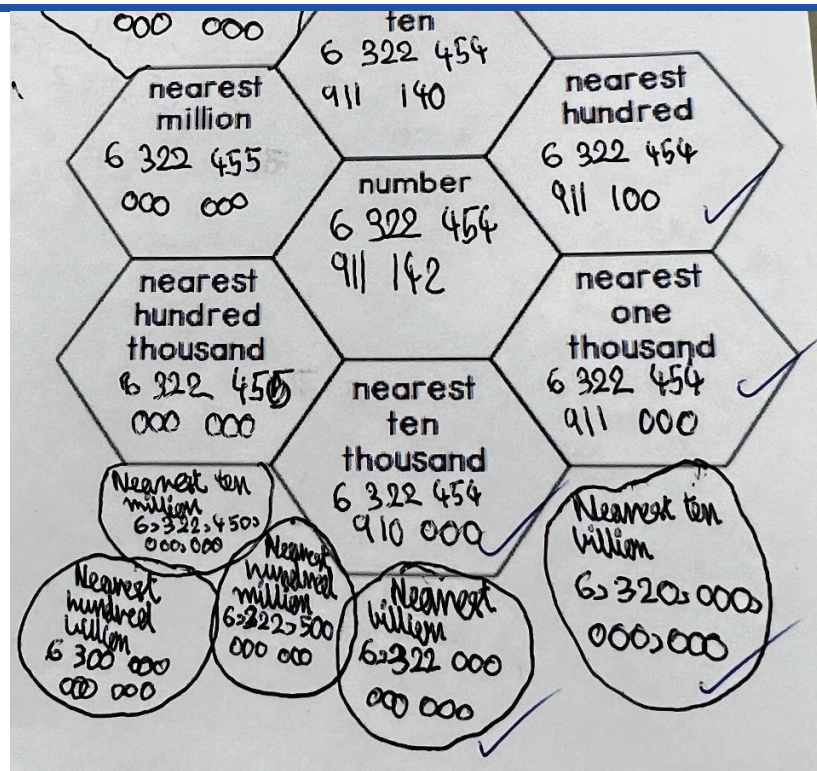 000 000
ten
6 322 454
911 140
nearest
million
6 322 455
000 000
nearest
hundred
6 322 454
911 100
number
6 322 454
911 142
nearest
hundred
thousand
6 322 455
000 000
nearest
one
thousand
6 322 454
911 000
nearest
ten
thousand
6 322 454
910 000
Nearest ten
million
6,322,450,
000,000
Nearest
hundred
billion
6 300 000
000 000
Nearest
hundred
million
6,322,500
000 000
Nearest
billion
6,322 000
000 000
Nearest ten
billion
6,320,000,
000,000